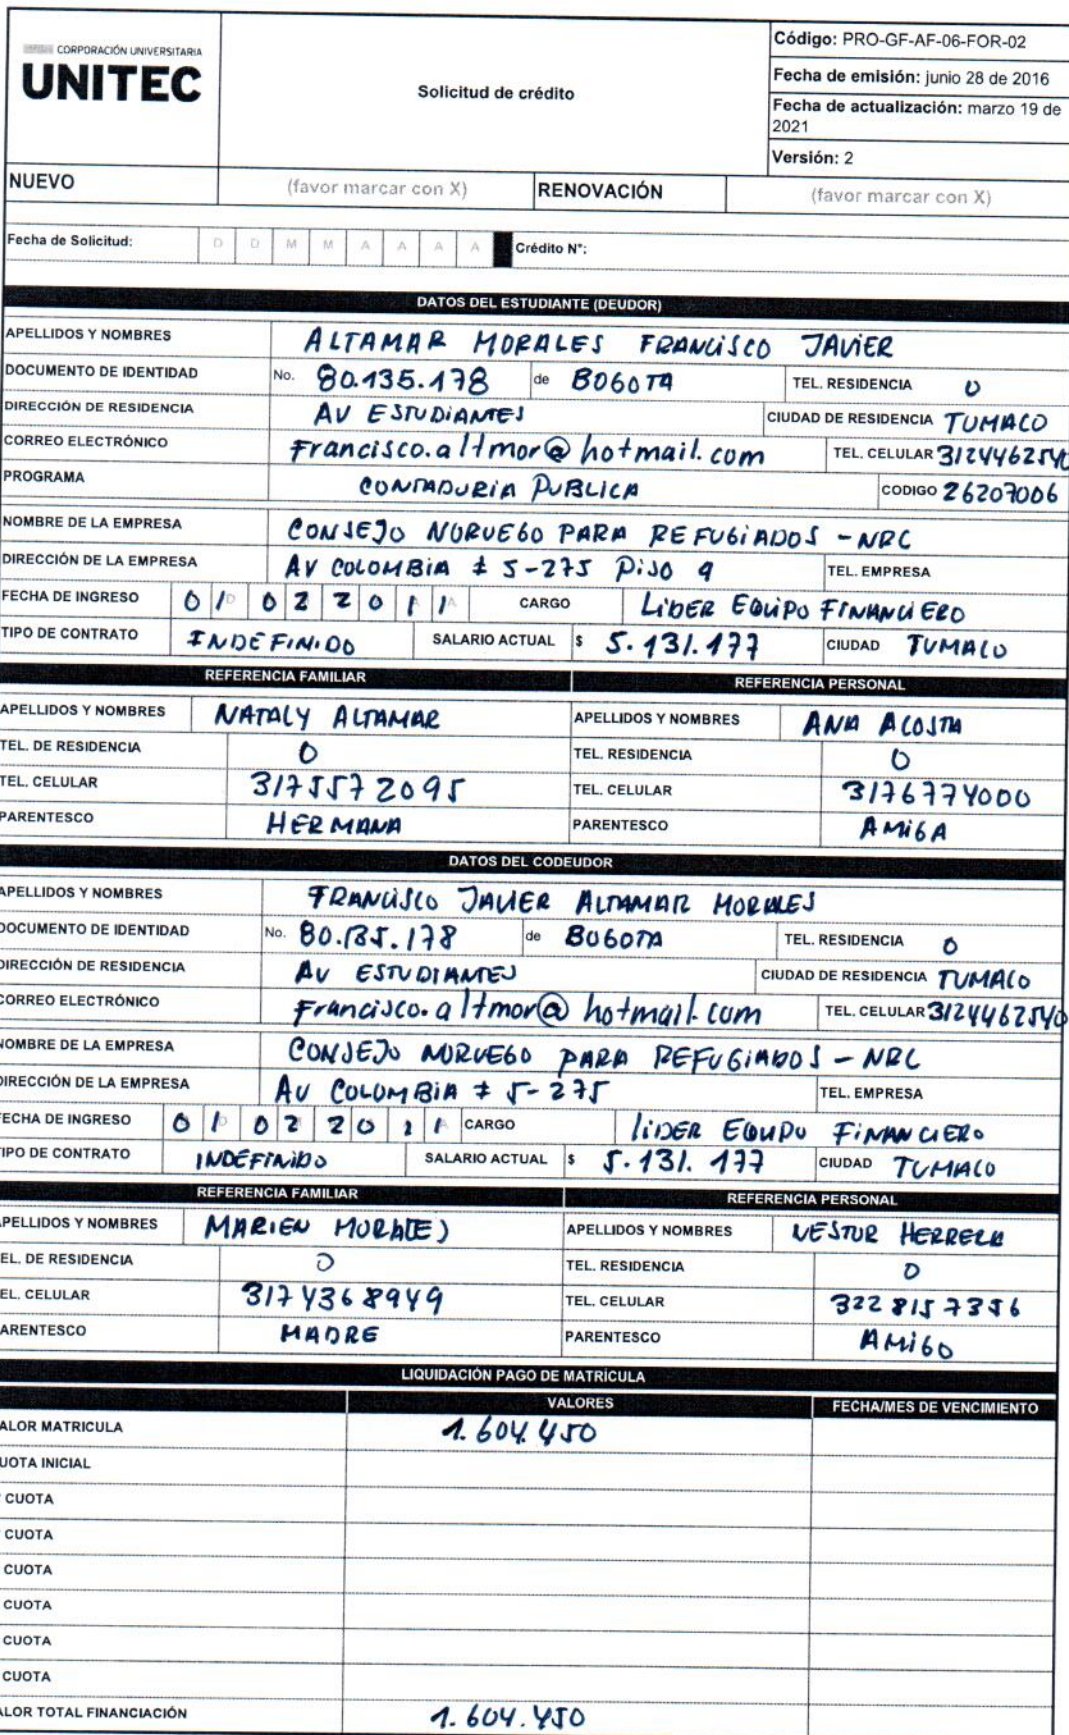 CORPORACIÓN UNIVERSITARIA
UNITEC
Solicitud de crédito
Código: PRO-GF-AF-06-FOR-02
Fecha de emisión: junio 28 de 2016
Fecha de actualización: marzo 19 de
2021
Versión: 2
NUEVO (favor marcar con X) RENOVACIÓN (favor marcar con X)
Fecha de Solicitud: D D M M A A A A Crédito N°:
DATOS DEL ESTUDIANTE (DEUDOR)
APELLIDOS Y NOMBRES ALTAMAR MORALES FRANCISCO JAVIER
DOCUMENTO DE IDENTIDAD No. 80.135.178 de BOGOTA TEL. RESIDENCIA 0
DIRECCIÓN DE RESIDENCIA AV ESTUDIANTES CIUDAD DE RESIDENCIA TUMACO
CORREO ELECTRÓNICO Francisco.altmor@hotmail.com TEL. CELULAR 3124462540
PROGRAMA CONTADURIA PUBLICA CODIGO 26207006
NOMBRE DE LA EMPRESA CONSEJO NORUEGO PARA REFUGIADOS - NRC
DIRECCIÓN DE LA EMPRESA AV COLOMBIA # 5-275 PISO 9 TEL. EMPRESA
FECHA DE INGRESO 01 02 2011 CARGO LIDER EQUIPO FINANCIERO
TIPO DE CONTRATO INDEFINIDO SALARIO ACTUAL $ 5.131.177 CIUDAD TUMACO
REFERENCIA FAMILIAR REFERENCIA PERSONAL
APELLIDOS Y NOMBRES NATALY ALTAMAR APELLIDOS Y NOMBRES ANA ACOSTA
TEL. DE RESIDENCIA 0 TEL. RESIDENCIA 0
TEL. CELULAR 3175572095 TEL. CELULAR 3176774000
PARENTESCO HERMANA PARENTESCO AMIGA
DATOS DEL CODEUDOR
APELLIDOS Y NOMBRES FRANCISCO JAVIER ALTAMAR MORALES
DOCUMENTO DE IDENTIDAD No. 80.135.178 de BOGOTA TEL. RESIDENCIA 0
DIRECCIÓN DE RESIDENCIA AV ESTUDIANTES CIUDAD DE RESIDENCIA TUMACO
CORREO ELECTRÓNICO Francisco.altmor@hotmail.com TEL. CELULAR 3124462540
NOMBRE DE LA EMPRESA CONSEJO NORUEGO PARA REFUGIADOS - NRC
DIRECCIÓN DE LA EMPRESA AV COLOMBIA # 5-275 TEL. EMPRESA
FECHA DE INGRESO 01 02 2011 CARGO LIDER EQUIPO FINANCIERO
TIPO DE CONTRATO INDEFINIDO SALARIO ACTUAL $ 5.131.177 CIUDAD TUMACO
REFERENCIA FAMILIAR REFERENCIA PERSONAL
APELLIDOS Y NOMBRES MARIEN MORALES APELLIDOS Y NOMBRES NESTOR HERRERA
TEL. DE RESIDENCIA 0 TEL. RESIDENCIA 0
TEL. CELULAR 3174368949 TEL. CELULAR 3228157356
PARENTESCO MADRE PARENTESCO AMIGO
LIQUIDACIÓN PAGO DE MATRÍCULA
VALORES FECHA/MES DE VENCIMIENTO
VALOR MATRICULA 1.604.450
CUOTA INICIAL
CUOTA
CUOTA
CUOTA
CUOTA
CUOTA
CUOTA
VALOR TOTAL FINANCIACIÓN 1.604.450